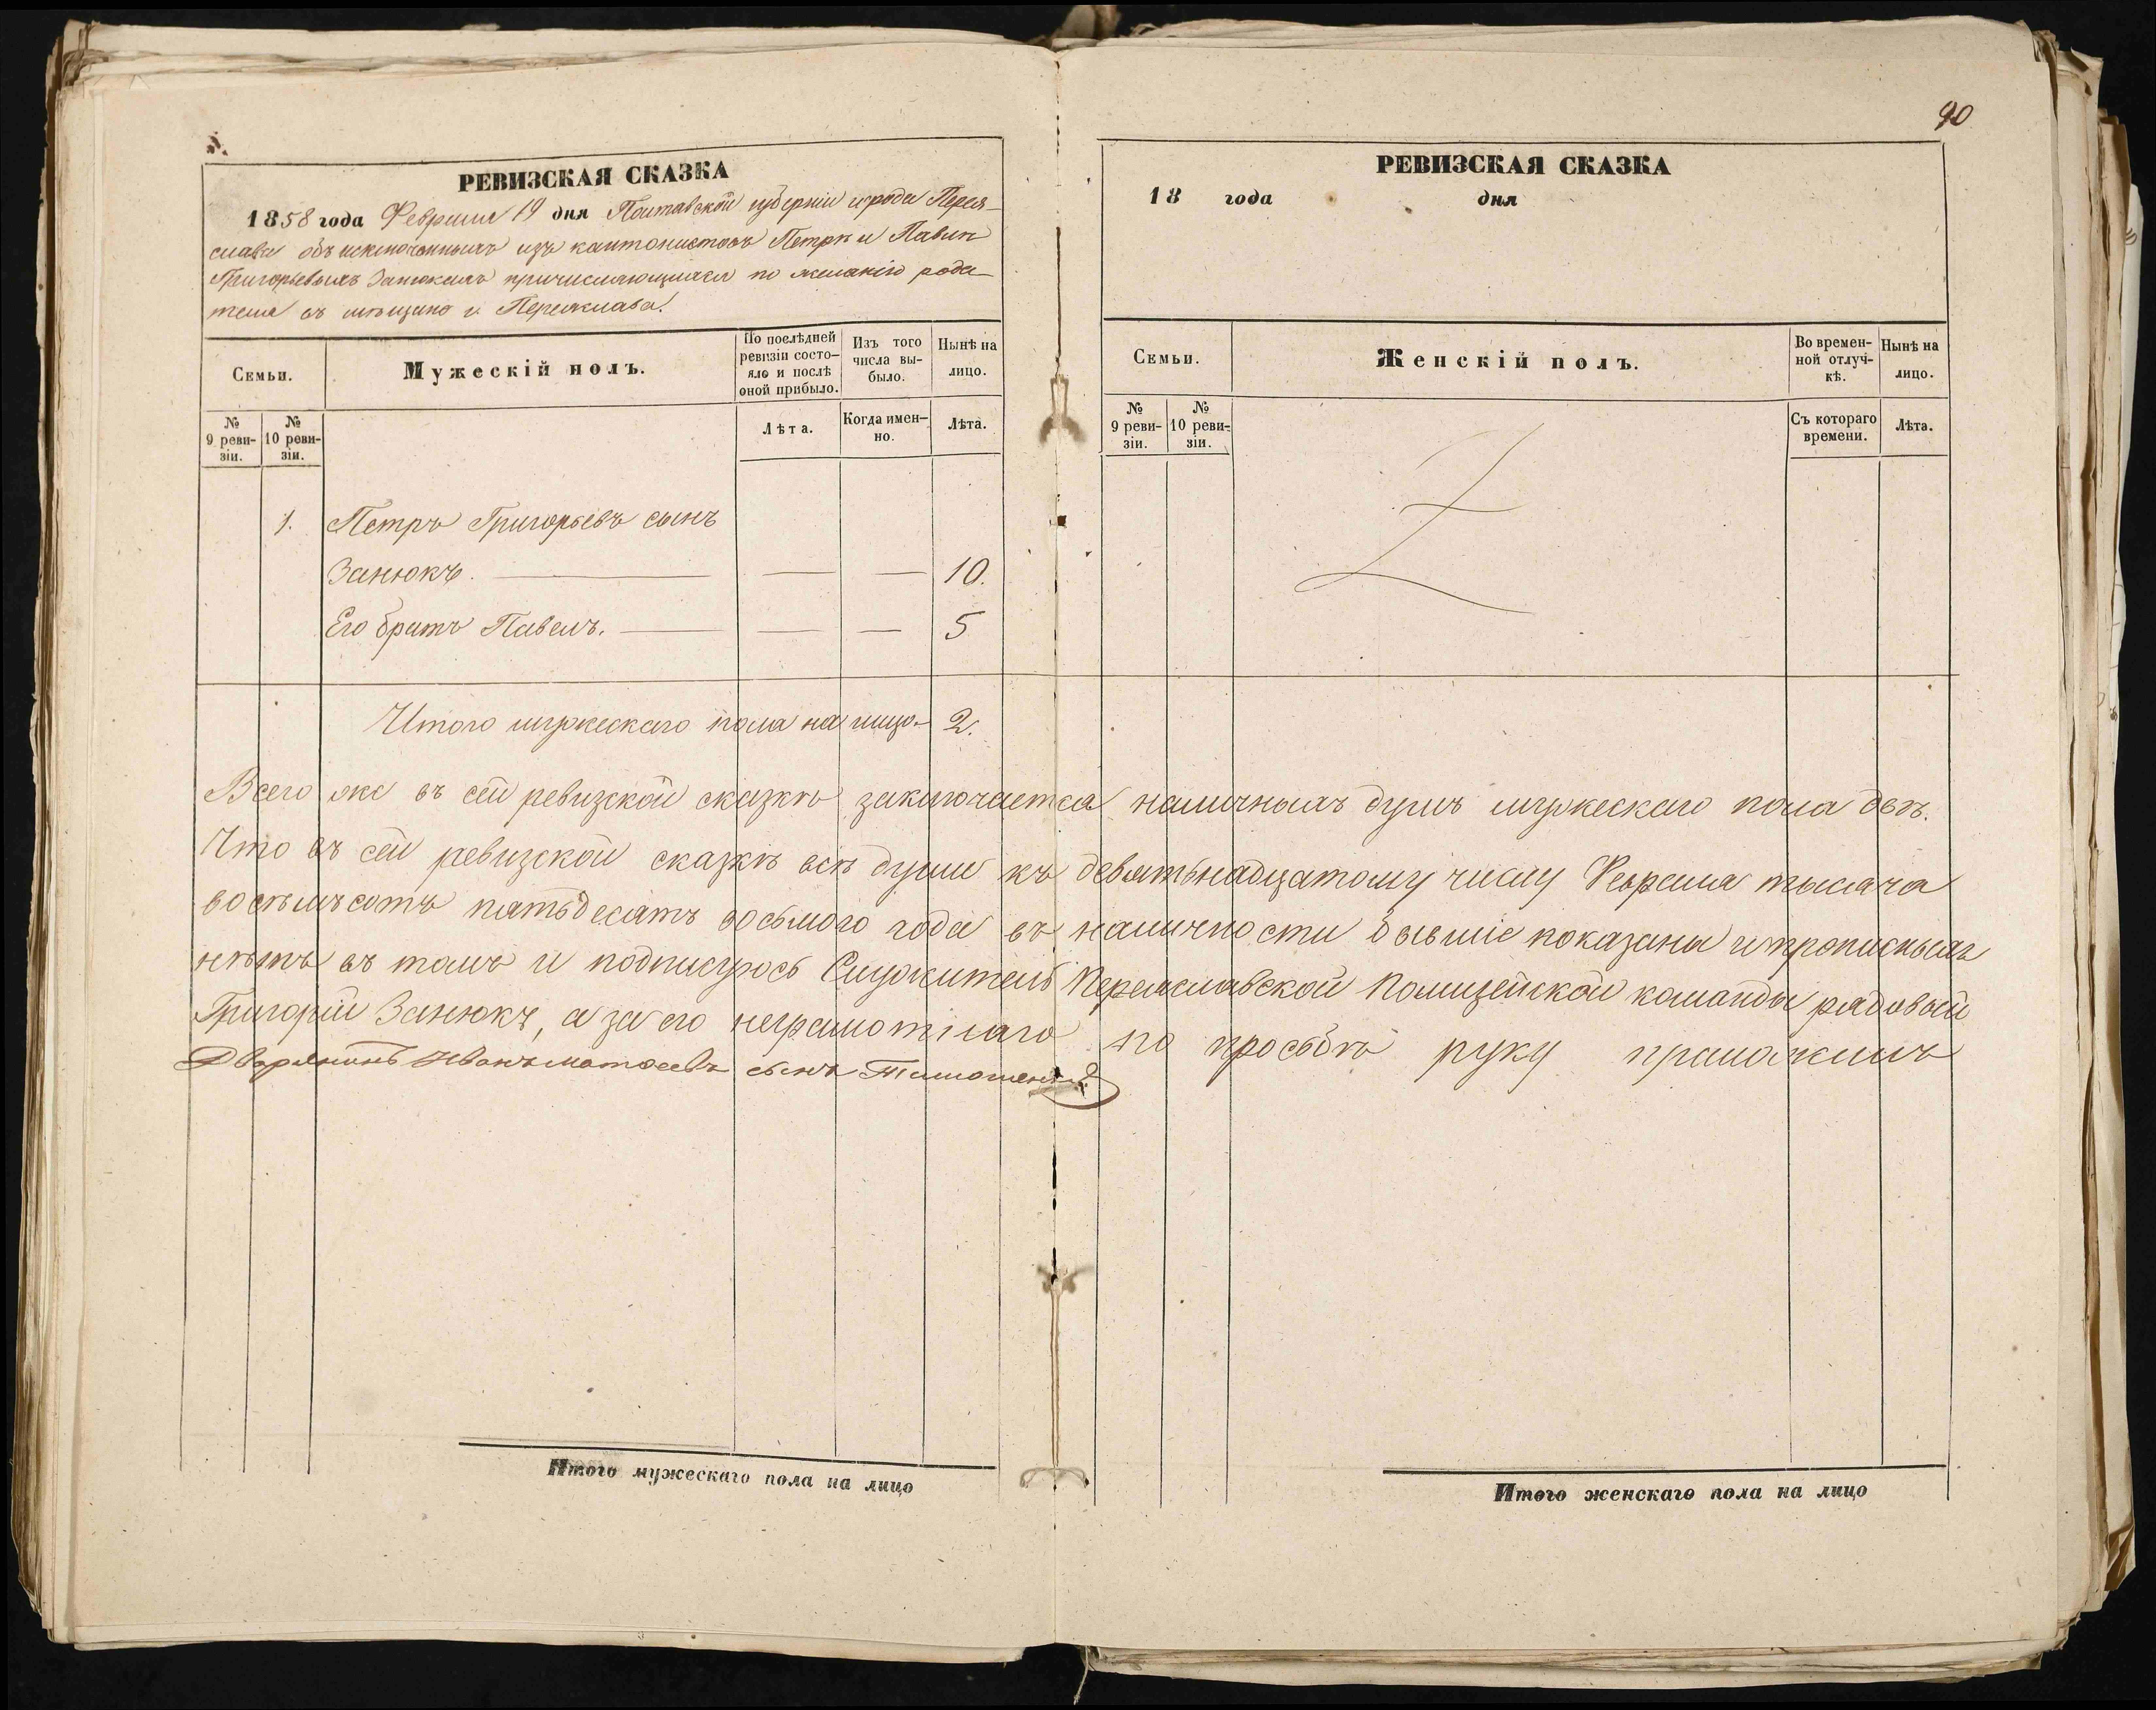 90
РЕВИЗСКАЯ СКАЗКА
1858 года Февраля 19 дня Полтавской губерніи города Перея-
слава объ исключенныхъ изъ кантонистовъ Петрѣ и Павлѣ
Григорьевыхъ Занюкахъ причисляющихся по желанію роди-
теля въ мѣщане г. Переяслава.
Семьи.
Мужескій полъ.
По послѣдней ревизіи состо-
яло и послѣ оной прибыло.
Изъ того числа вы-
было.
Нынѣ на лицо.
№ 9 реви-
зіи.
№ 10 реви-
зіи.
Лѣта.
Когда имен-
но.
Лѣта.
1. Петръ Григорьевъ сынъ
Занюкъ. — — — 10.
Его братъ Павелъ. — — — 5
Итого мужескаго пола на лицо - 2.
РЕВИЗСКАЯ СКАЗКА
18 года дня
Семьи.
Женскій полъ.
Во времен-
ной отлуч-
кѣ.
Нынѣ на лицо.
№ 9 реви-
зіи.
№ 10 реви-
зіи.
Съ котораго времени.
Лѣта.
Всего же въ сей ревизской сказкѣ заключается наличныхъ душъ мужескаго пола двѣ.
Что въ сей ревизской сказкѣ всѣ души къ девятьнадцатому числу Февраля тысяча
восемьсотъ пятьдесятъ восьмого года въ наличности бывшіе показаны и прописныхъ
нѣтъ въ томъ и подписуюсь Служитель Переяславской Полицейской команды рядовый
Григорій Занюкъ, а за его неграмотнаго по просьбѣ руку приложилъ
Дворянинъ Иванъ Матвеевъ сынъ
Итого мужескаго пола на лицо
Итого женскаго пола на лицо